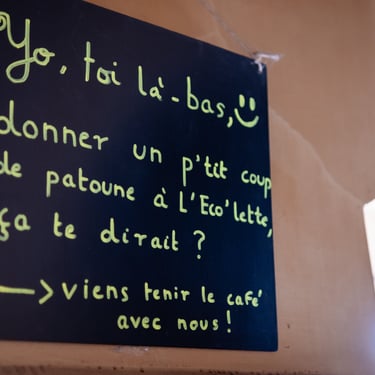 Yo, toi là-bas,
donner un p'tit coup
de patoune à L'Eco'lette,
ça te dirait ?
→ viens tenir le café
avec nous !